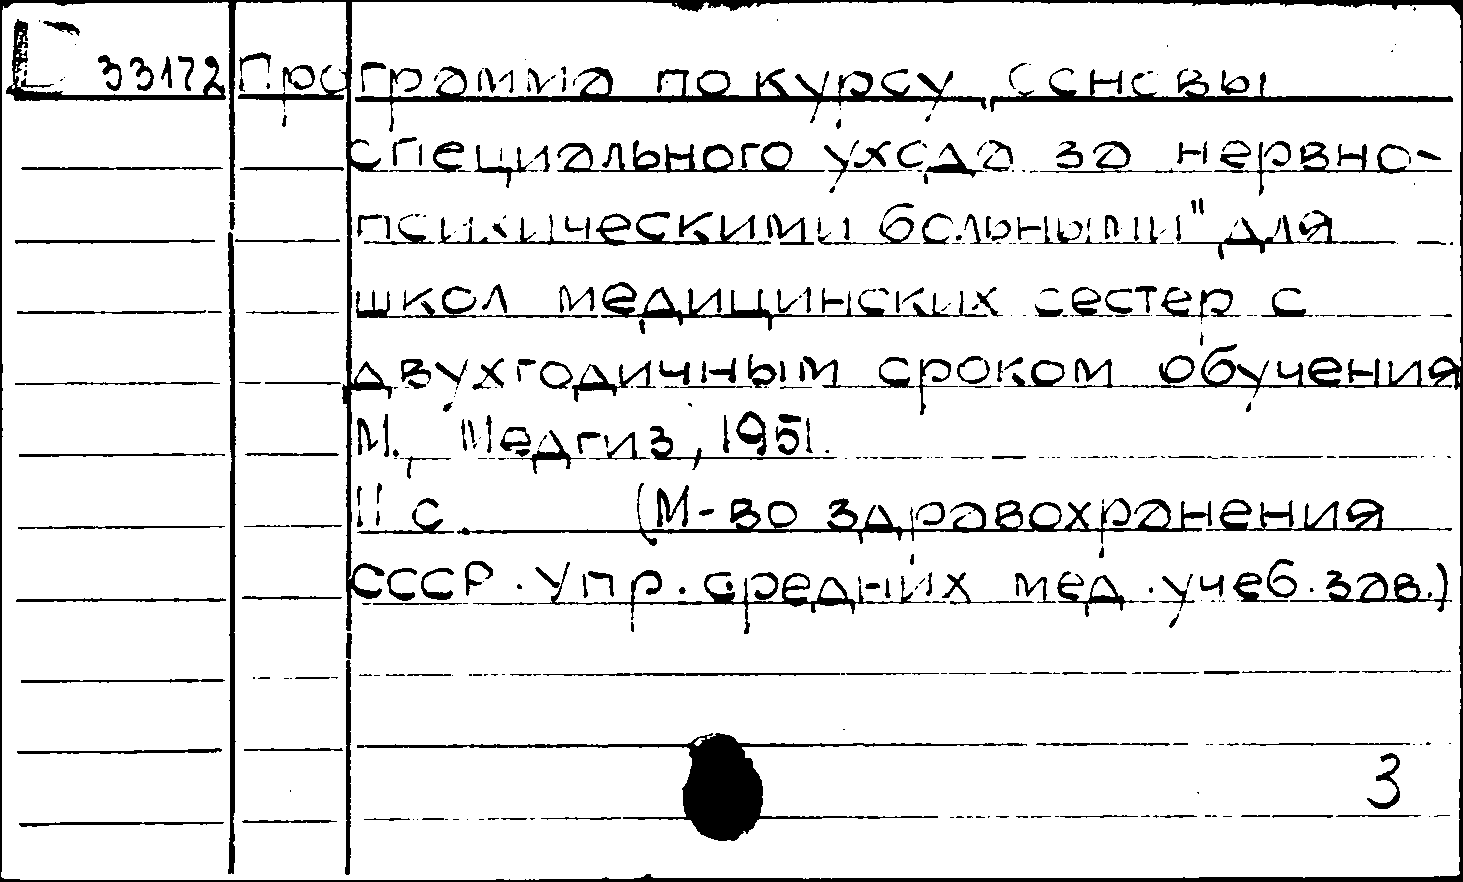 33172 Программа по курсу „Основы
специального ухода за нервно-
психическими больными" для
школ медицинских сестер с
двухгодичным сроком обучения
М., Медгиз, 1951.
11 с. (М-во здравохранения
СССР. Упр. средних мед. учеб. зав.)
3